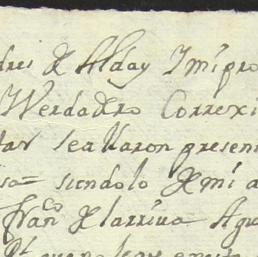 dres de Alday Ymipro
Verdadro Correxi
tar seallaron presen
sa= siendolo de mi a
fran.co de larrina Agu